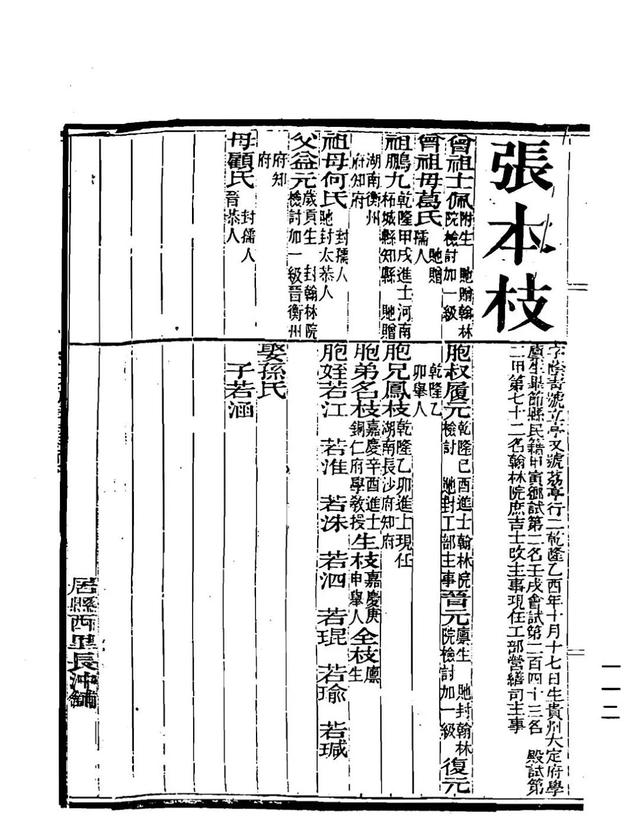 張本枝
字蔭青號立亭又號荔亭行二乾隆乙酉年十月十七日生貴州大定府學
廩生畢節縣民籍甲寅鄉試第二名壬戌會試第二百四十三名 殿試第
二甲第七十二名翰林院庶吉士改主事現任工部營繕司主事
曾祖士佩 附生 貤贈翰林院檢討加一級
曾祖母葛氏 貤贈孺人
祖鵬九 乾隆甲戌進士河南柘城縣知縣 貤贈湖南衡州府知府
祖母何氏 封孺人 貤封太恭人
父益元 歲貢生 封翰林院檢討加一級晉衡州府知府
母顧氏 封孺人 晉恭人
胞叔履元 乾隆己酉進士翰林院檢討 貤封工部主事 晉元 廩生 貤封翰林院檢討加一級 復元 乾隆乙卯舉人
胞兄鳳枝 乾隆乙卯進士現任湖南長沙府知府
胞弟名枝 嘉慶辛酉進士銅仁府學教授 生枝 嘉慶庚申舉人 全枝 廩生
胞姪若江 若淮 若洙 若泗 若琨 若瑜 若瑊
娶孫氏
子若涵
居縣西里長沖鋪
一一二